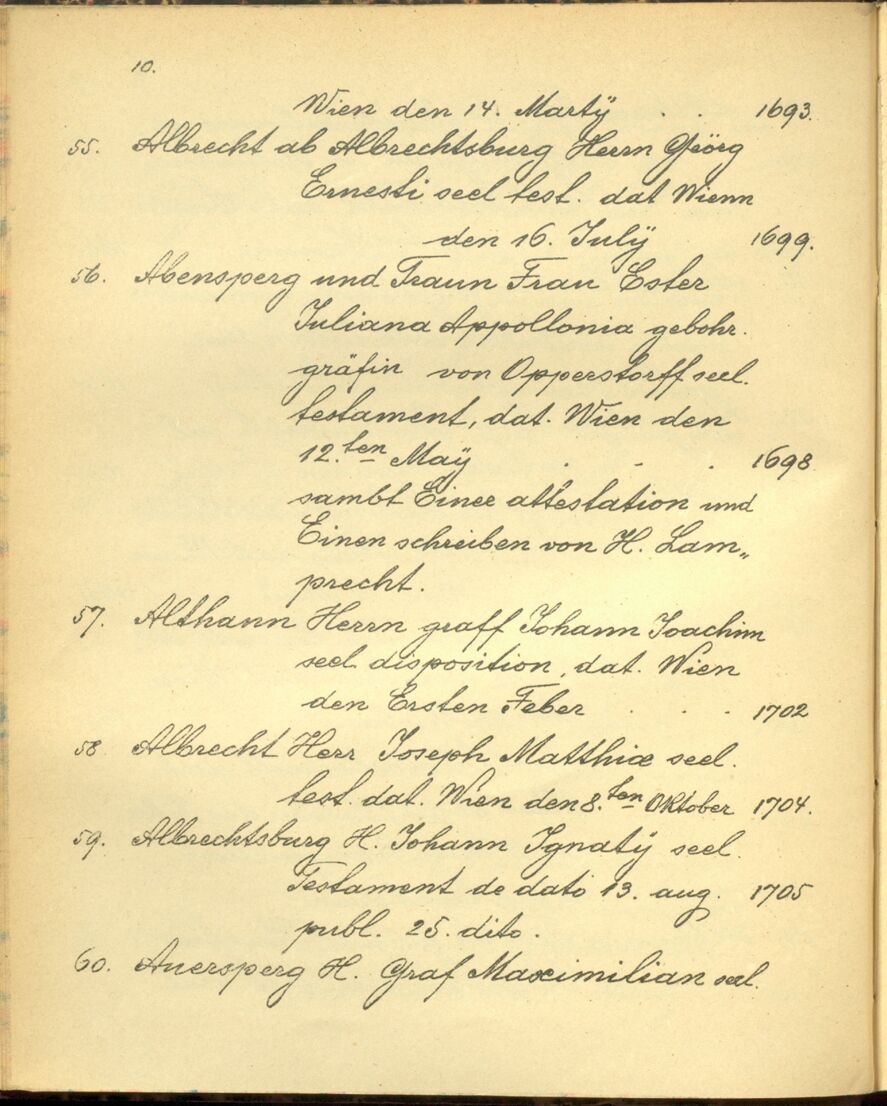 10.
Wien den 14. Martÿ . . 1693.
55. Albrecht ab Albrechtsburg Herrn Geörg
Ernesti seel test. dat Wienn
den 16. Julÿ 1699.
56. Abensperg und Traun Frau Ester
Juliana Appollonia gebohr.
gräfin von Opperstorff seel.
testament, dat. Wien den
12.ten Maÿ . . . 1698
sambt Einer attestation und
Einen schreiben von H. Lam„
precht.
57. Althann Herrn graff Johann Joachim
seel disposition, dat. Wien
den Ersten Feber . . . 1702
58 Albrecht Herr Joseph Matthiæ seel.
test. dat. Wien den 8.ten Oktober 1704.
59. Albrechtsburg H. Johann Ignatÿ seel.
Testament de dato 13. aug. 1705
publ. 25. dito.
60. Auersperg H. Graf Maximilian seel.